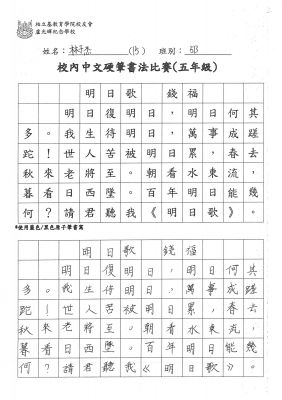 柏立基教育學院校友會
盧光輝紀念學校
姓名： (15) 班別：5B
校內中文硬筆書法比賽(五年級)
明日歌 錢福
明日復明日，明日何其
多。我生待明日，萬事成蹉
跎！世人苦被明日累，春去
秋來老將至。朝看水東流，
暮看日西墜。百年明日能幾
何？請君聽我《明日歌》。
*使用藍色/黑色原子筆書寫
明日歌 錢福
明日復明日，明日何其
多。我生待明日，萬事成蹉
跎！世人苦被明日累，春去
秋來老將至。朝看水東流，
暮看日西墜。百年明日能幾
何？請君聽我《明日歌》。